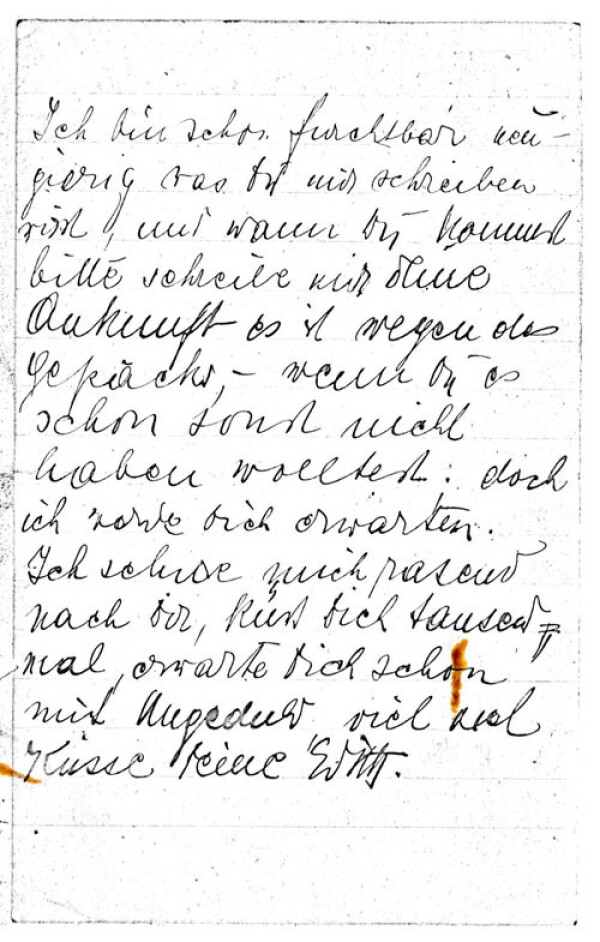 Ich bin schon furchtbar neu-
gierig was Du mir schreiben
wirst, und wann Du kommst
bitte schreibe mir Deine
Ankunft es ist wegen des
Gepäcks, – wenn Du es
schon sonst nicht
haben wolltest: doch
ich werde Dich erwarten.
Ich sehne mich rasend
nach Dir, küss Dich tausend
mal, erwarte Dich schon
mit Ungeduld viel viel
Küsse Deine Edith.